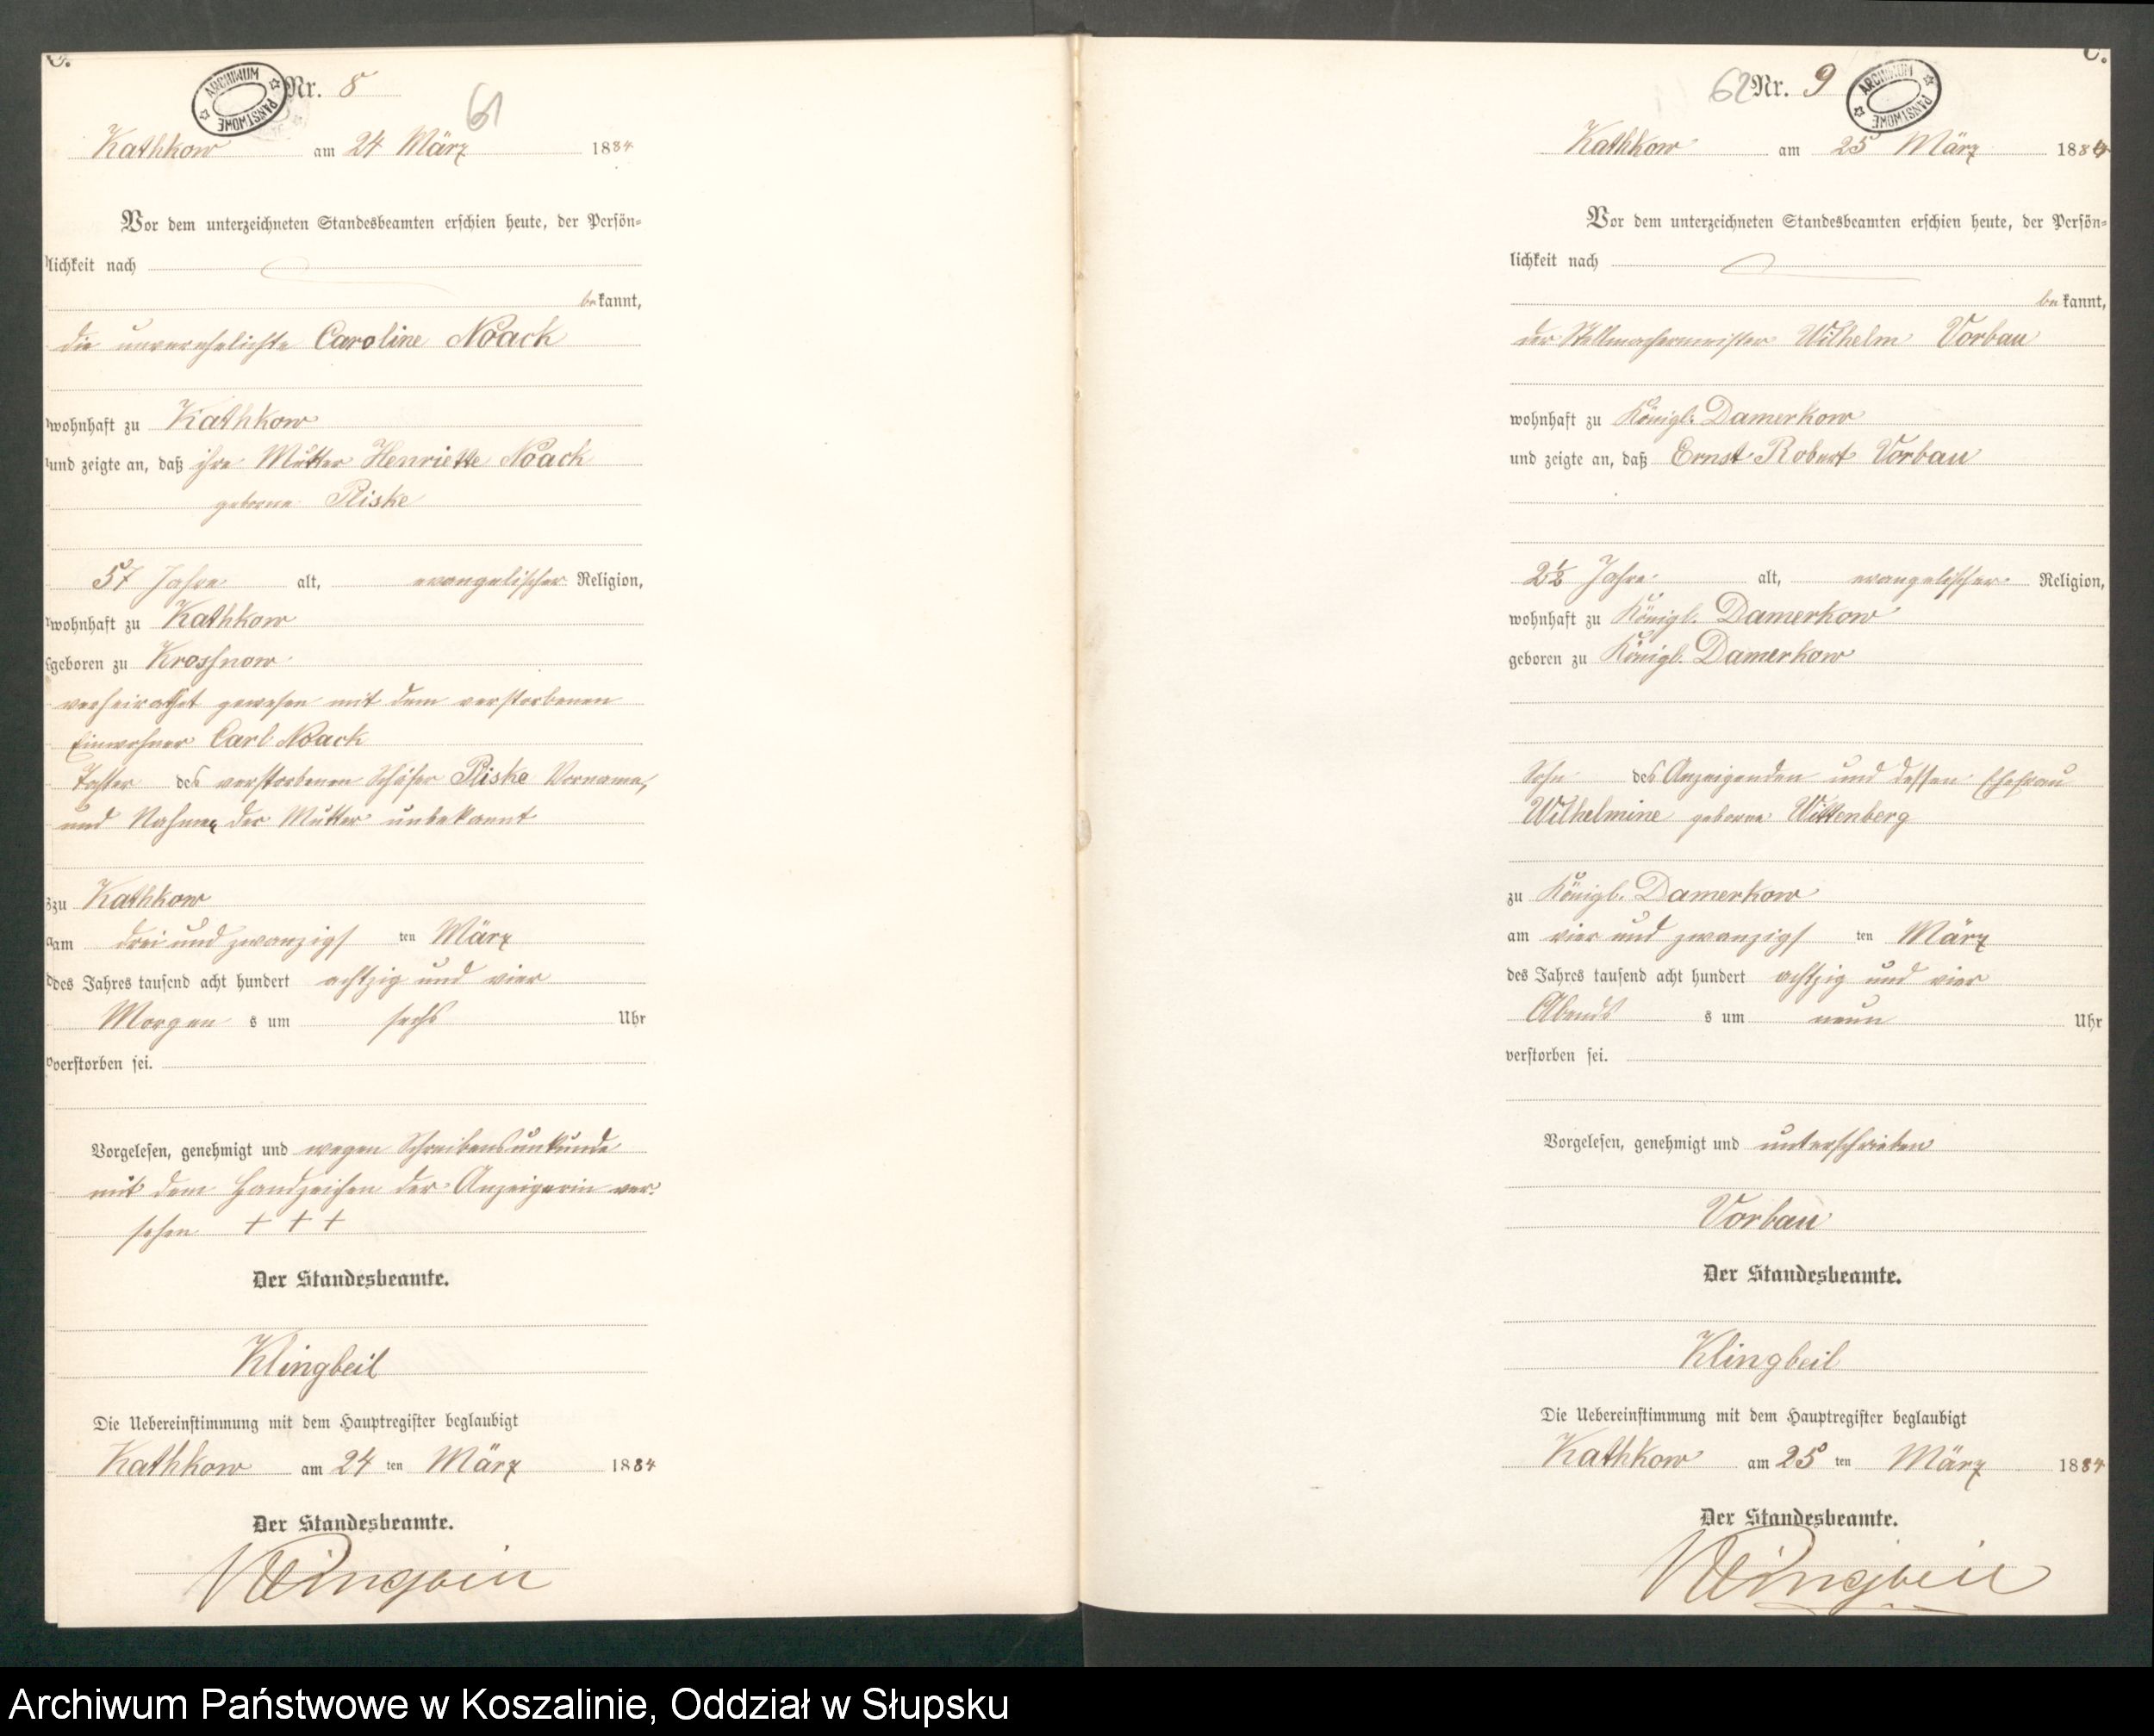 C.
ARCHIWUM PAŃSTWOWE
Nr. 8
61
Kathkow am 24 März 1884
Vor dem unterzeichneten Standesbeamten erschien heute, der Persön-
lichkeit nach
bekannt,
die unverehelichte Caroline Noack
wohnhaft zu Kathkow
und zeigte an, daß ihre Mutter Henriette Noack
geborne Pliske
57 Jahre alt, evangelischer Religion,
wohnhaft zu Kathkow
geboren zu Krossnow
verheirathet gewesen mit dem verstorbenen
Einwohner Carl Noack
Tochter des verstorbenen Schäfer Pliske Vorname,
und Nahmen der Mutter unbekannt
zu Kathkow
am drei und zwanzigs ten März
des Jahres tausend acht hundert achtzig und vier
Morgen s um sechs Uhr
verstorben sei.
Vorgelesen, genehmigt und wegen Schreibensunkunde
mit dem Handzeichen der Anzeigerin ver-
sehen + + +
Der Standesbeamte.
Klingbeil
Die Uebereinstimmung mit dem Hauptregister beglaubigt
Kathkow am 24 ten März 1884
Der Standesbeamte.
Klingbeil
C.
62 Nr. 9
ARCHIWUM PAŃSTWOWE
Kathkow am 25 März 1884
Vor dem unterzeichneten Standesbeamten erschien heute, der Persön-
lichkeit nach
bekannt,
der Stellmachermeister Wilhelm Vorbau
wohnhaft zu Königl. Damerkow
und zeigte an, daß Ernst Robert Vorbau
2½ Jahre alt, evangelischer Religion,
wohnhaft zu Königl. Damerkow
geboren zu Königl. Damerkow
Sohn des Anzeigenden und dessen Ehefrau
Wilhelmine geborne Wittenberg
zu Königl. Damerkow
am vier und zwanzigs ten März
des Jahres tausend acht hundert achtzig und vier
Abends s um neun Uhr
verstorben sei.
Vorgelesen, genehmigt und unterschrieben
Vorbau
Der Standesbeamte.
Klingbeil
Die Uebereinstimmung mit dem Hauptregister beglaubigt
Kathkow am 25 ten März 1884
Der Standesbeamte.
Klingbeil
Archiwum Państwowe w Koszalinie, Oddział w Słupsku